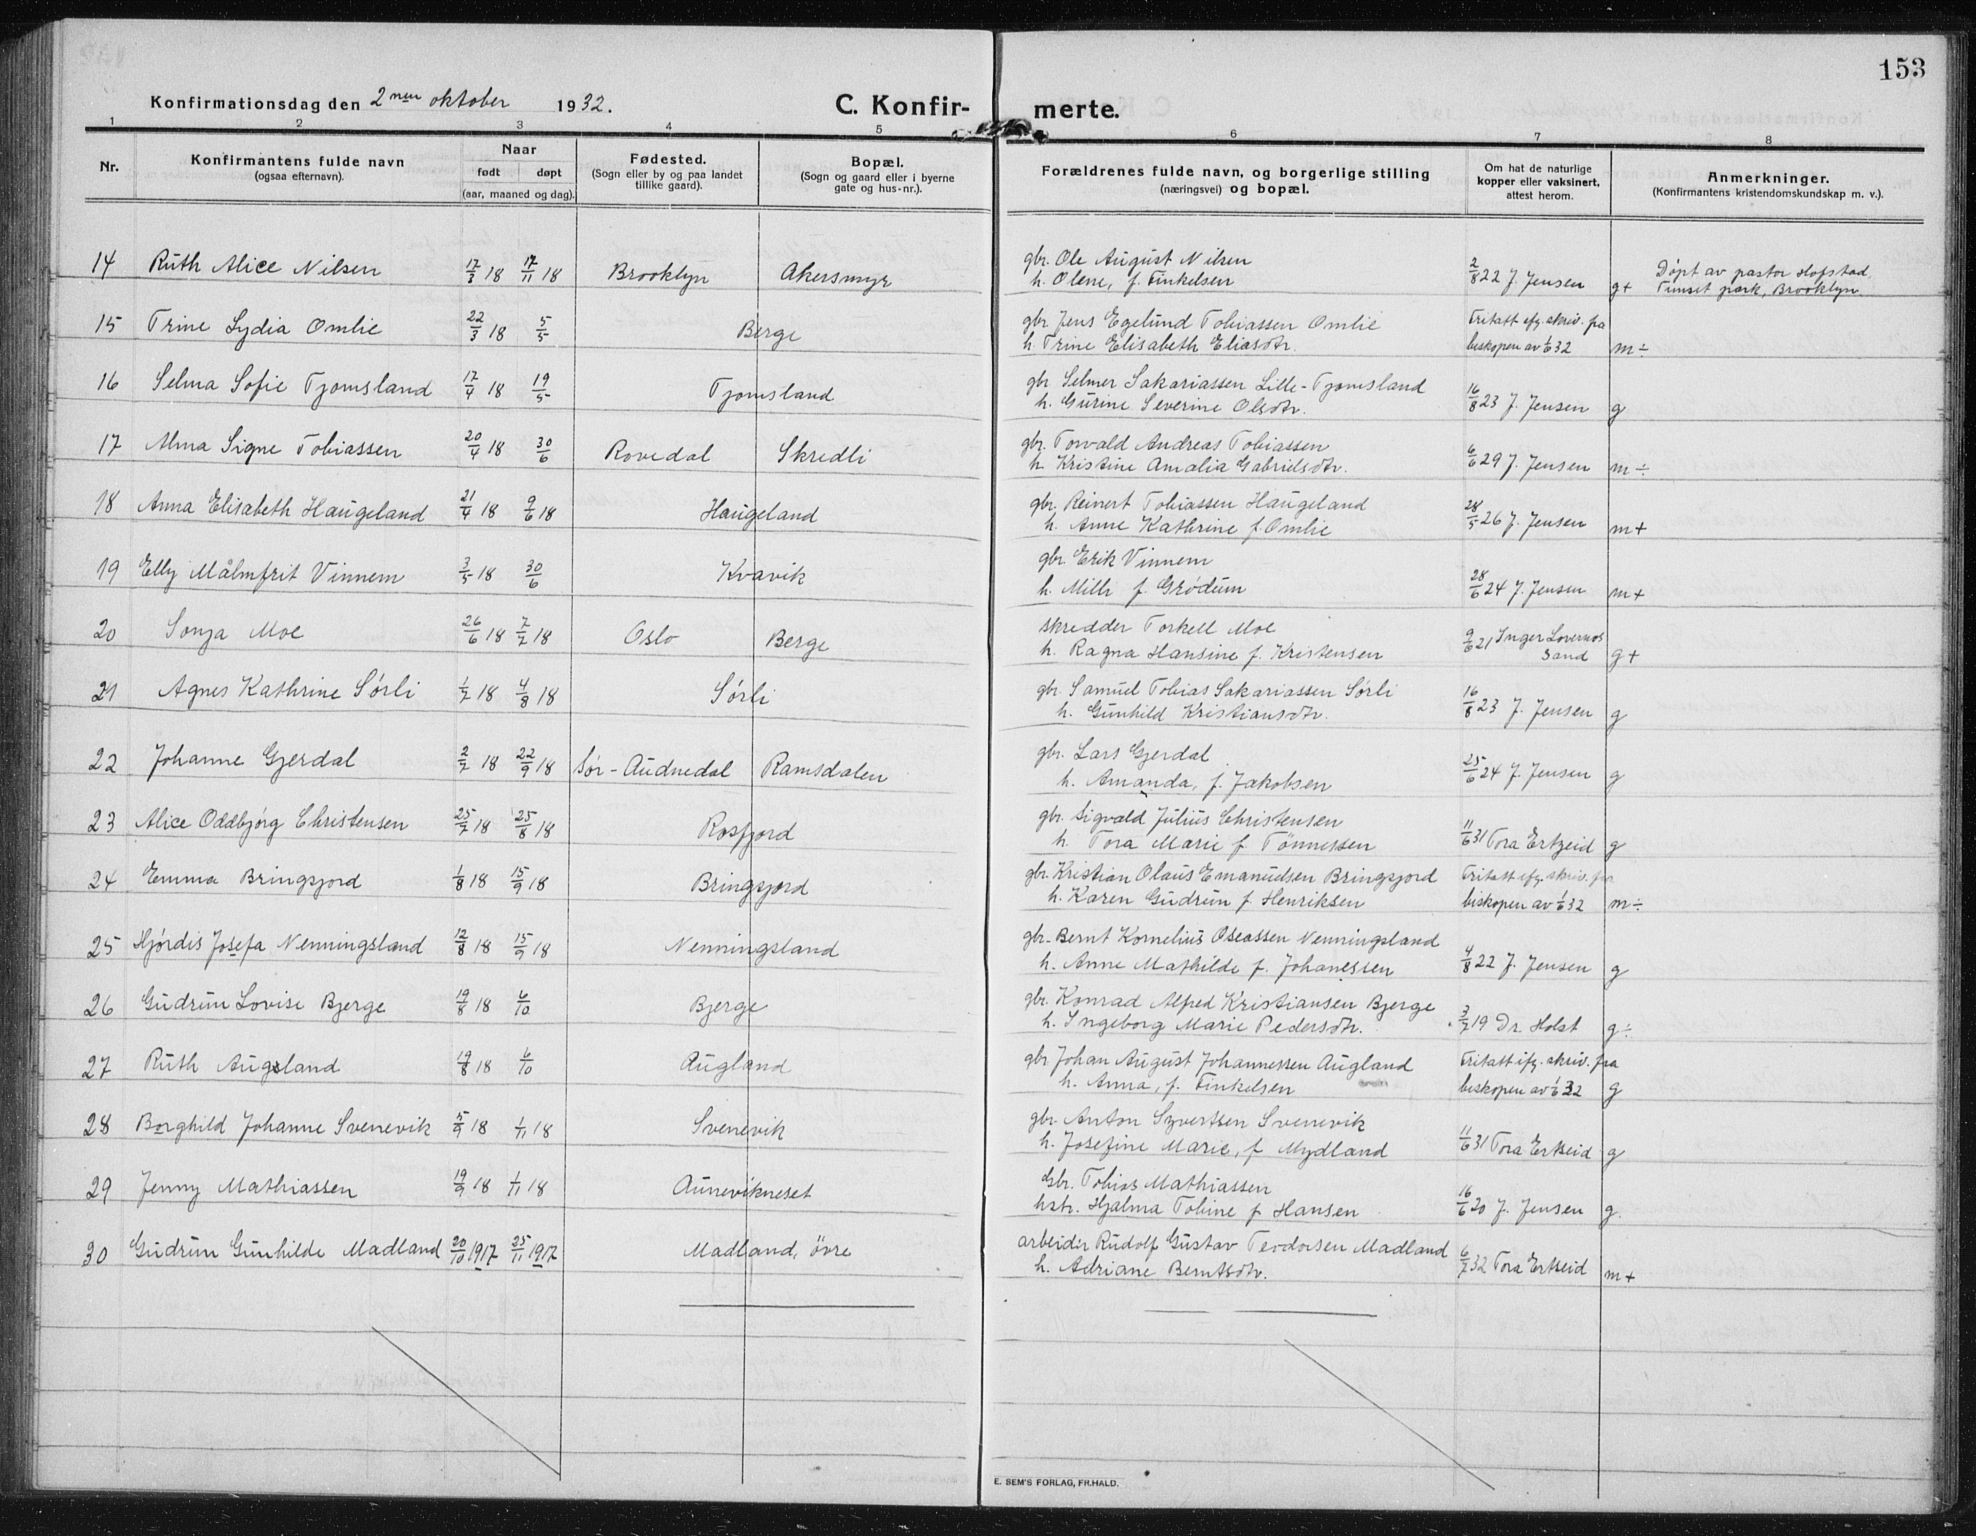 153
Konfirmationsdag den 2nen oktober 1932. C. Konfir- merte.
1 2 3 4 5 6 7 8
Nr. Konfirmantens fulde navn (ogsaa efternavn). Naar født døpt (aar, maaned og dag). Fødested. (Sogn eller by og paa landet tillike gaard). Bopæl. (Sogn og gaard eller i byerne gate og hus-nr.). Forældrenes fulde navn, og borgerlige stilling (næringsvei) og bopæl. Om hat de naturlige kopper eller vaksinert, attest herom. Anmerkninger. (Konfirmantens kristendomskundskap m. v.).
14 Ruth Alice Nilsen 17/3 18 17/11 18 Brooklyn Akersmyr gbr. Ole August Nilsen
h. Olene, f. Finkelsen 2/8 22 J. Jensen g+ Døpt av pastor Hofstad, park, Brooklyn.
15 Trine Lydia Omlie 22/3 18 5/5 Berge gbr Jens Egelund Tobiassen Omlie Fritatt efg. skriv. fra
h. Trine Elisabeth Eliasdtr. biskopen av 1/6 32 m÷
16 Selma Sofie Tjomsland 17/4 18 19/5 Tjomsland gbr Selmer Sakariassen Lille-Tjomsland
h. Gurine Severine Olsdtr. 16/8 23 J. Jensen g
17 Alma Signe Tobiassen 20/4 18 30/6 Rovedal Skredli gbr. Torvald Andreas Tobiassen
h. Kristine Amalia Gabrielsdtr. 6/6 29 J. Jensen m÷
18 Anna Elisabeth Haugeland 21/4 18 9/6 18 Haugeland gbr. Reinert Tobiassen Haugeland
h. Anne Kathrine f Omlie 28/5 26 J. Jensen m+
19 Elly Målmfrit Vinnem 3/5 18 30/6 Kvavik gbr. Erik Vinnem
h. Milli f. Grødum 28/6 24 J. Jensen m+
20 Sonja Moe 26/6 18 7/7 18 Oslo Berge skredder Torkell Moe
h. Ragna Hansine f. Kristensen 9/6 21 Inger Sand g+
21 Agnes Kathrine Sørli 1/7 18 4/8 18 Sørli gbr. Samuel Tobias Sakariassen Sørli
h. Gunhild Kristiansdtr. 16/8 23 J. Jensen g
22 Johanne Gjerdal 2/7 18 22/9 18 Sør-Audnedal Ramsdalen gbr. Lars Gjerdal
h. Amanda, f. Jakobsen 25/6 24 J. Jensen g
23 Alice Oddbjørg Christensen 25/7 18 25/8 18 Rosfjord gbr. Sigvald Julius Christensen
h. Tora Marie f Tønnessen 11/6 31 Tora Ertzeid g
24 Emma Bringsjord 1/8 18 15/9 18 Bringsjord gbr. Kristian Olaus Emanuelsen Bringsjord Fritatt efg. skriv. fra
h. Karen Gudrun f Henriksen biskopen av 1/6 32 m÷
25 Hjørdis Josefa Nenningsland 12/8 18 15/9 18 Nenningsland gbr. Bernt Kornelius Oseassen Nenningsland
h. Anne Mathilde f. Johanessen 4/8 22 J. Jensen g
26 Gudrun Lovise Bjerge 19/8 18 6/10 Bjerge gbr. Konrad Alfred Kristiansen Bjerge
h. Ingeborg Marie Pedersdtr. 3/7 19 Dr. Holst g÷
27 Ruth Augland 19/8 18 6/10 Augland gbr Johan August Johannessen Augland Fritatt ifg. skriv. fra
h. Anna, f. Finkelsen biskopen av 1/6 32 g
28 Borghild Johanne Svenevik 5/9 18 1/11 18 Svenevik gbr. Anton Syvertsen Svenevik
h. Josefine Marie, f Mydland 11/6 31 Tora Ertseid g
29 Jenny Mathiassen 19/9 18 1/11 18 Aunevikneset Gbr. Tobias Mathiassen
hstr. Hjalma Tobine f Hansen 16/6 20 J. Jensen g.
30 Gudrun Gunhilde Madland 20/10 1917 25/11 1917 Madland, övre arbeider Rudolf Gustav Teodorsen Madland
h. Adriane Berntsdtr. 6/7 32 Tora Ertseid m+
E. SEM'S FORLAG, FR.HALD.